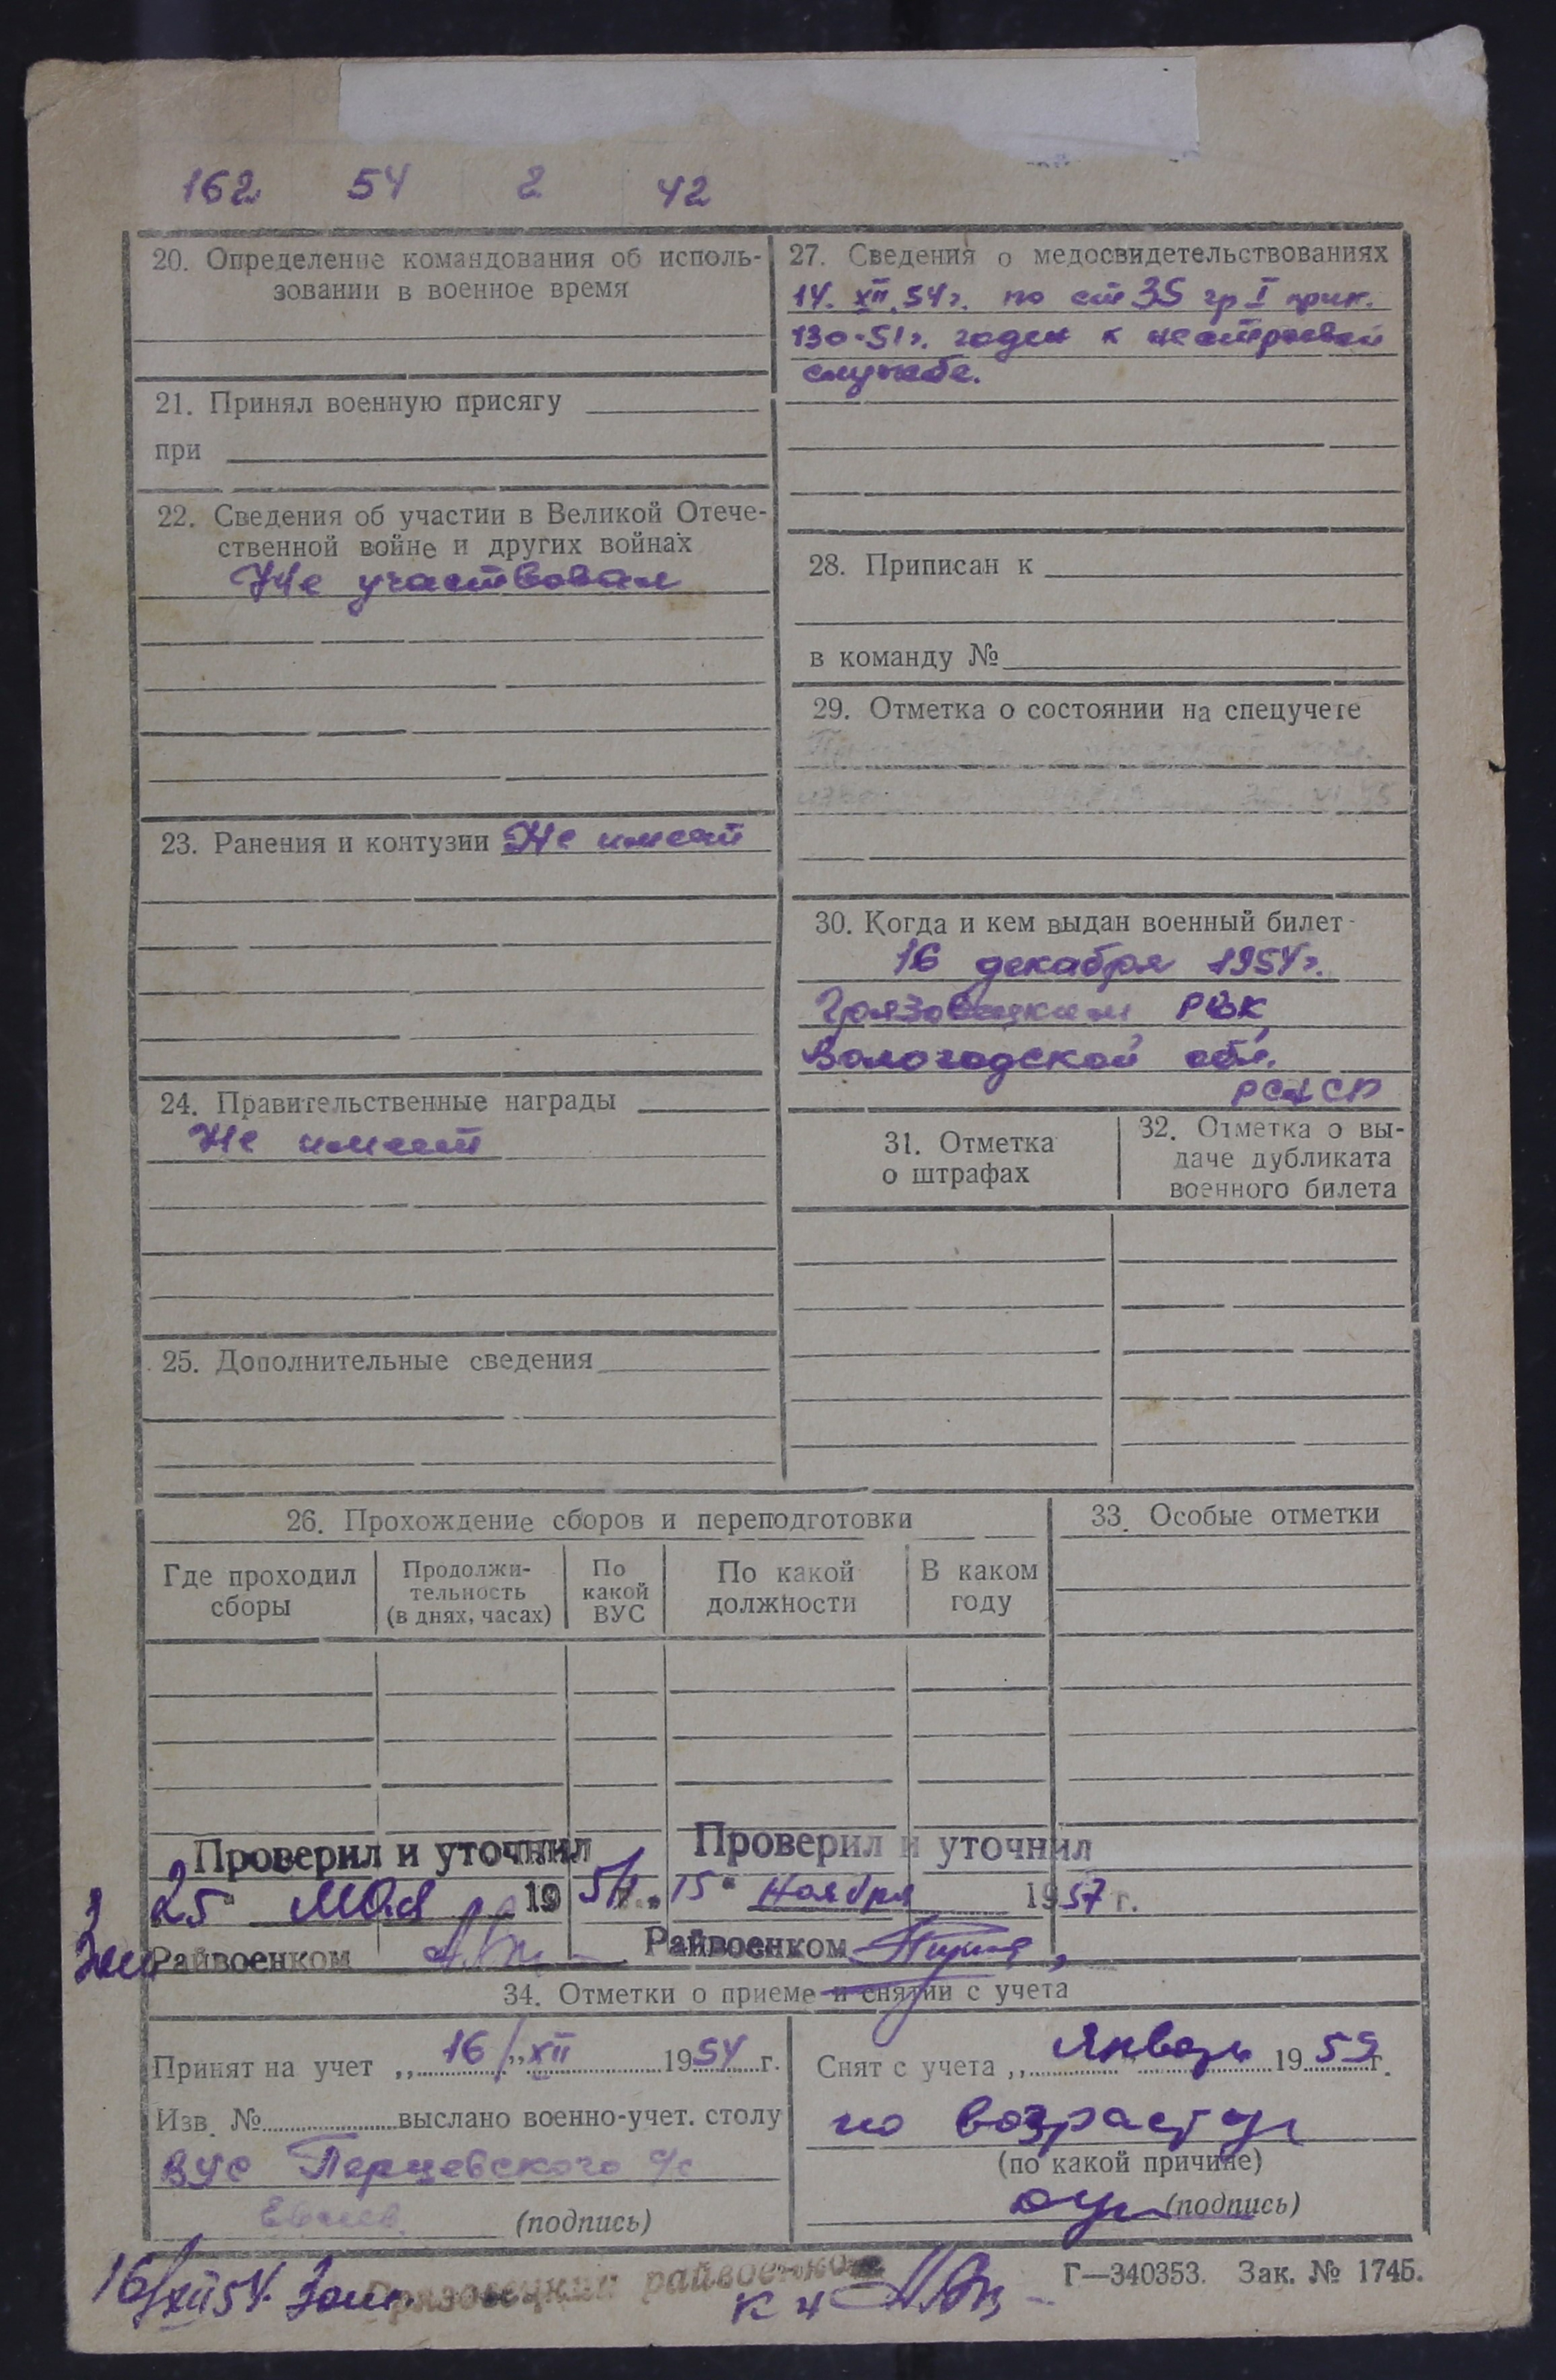 162 54 2 42
20. Определение командования об исполь-
зовании в военное время
21. Принял военную присягу
при
22. Сведения об участии в Великой Отече-
ственной войне и других войнах
Не участвовал
23. Ранения и контузии Не имеет
24. Правительственные награды
Не имеет
25. Дополнительные сведения
27. Сведения о медосвидетельствованиях
14. XII. 54г. по ст 35 гр I прик.
130-51г. годен к нестроевой
службе.
28. Приписан к
в команду №
29. Отметка о состоянии на спецучете
30. Когда и кем выдан военный билет
16 декабря 1954г.
Грязовецким РВК
Вологодской обл.
РСФСР
31. Отметка
о штрафах
32. Отметка о вы-
даче дубликата
военного билета
26. Прохождение сборов и переподготовки
Где проходил
сборы
Продолжи-
тельность
(в днях, часах)
По
какой
ВУС
По какой
должности
В каком
году
33. Особые отметки
Проверил и уточнил
25 мая 19
Райвоенком
Проверил и уточнил
15" ноября 1957 г.
Райвоенком
34. Отметки о приеме и снятии с учета
Принят на учет „16/" XII 1954 г.
Изв. № выслано военно-учет. столу
ВУС Перцевского с/с
(подпись)
Снят с учета „ Январь 1959 г.
по возрасту
(по какой причине)
(подпись)
16/XII 54.
Грязовецкий райвоенком
Г—340353. Зак. № 1745.